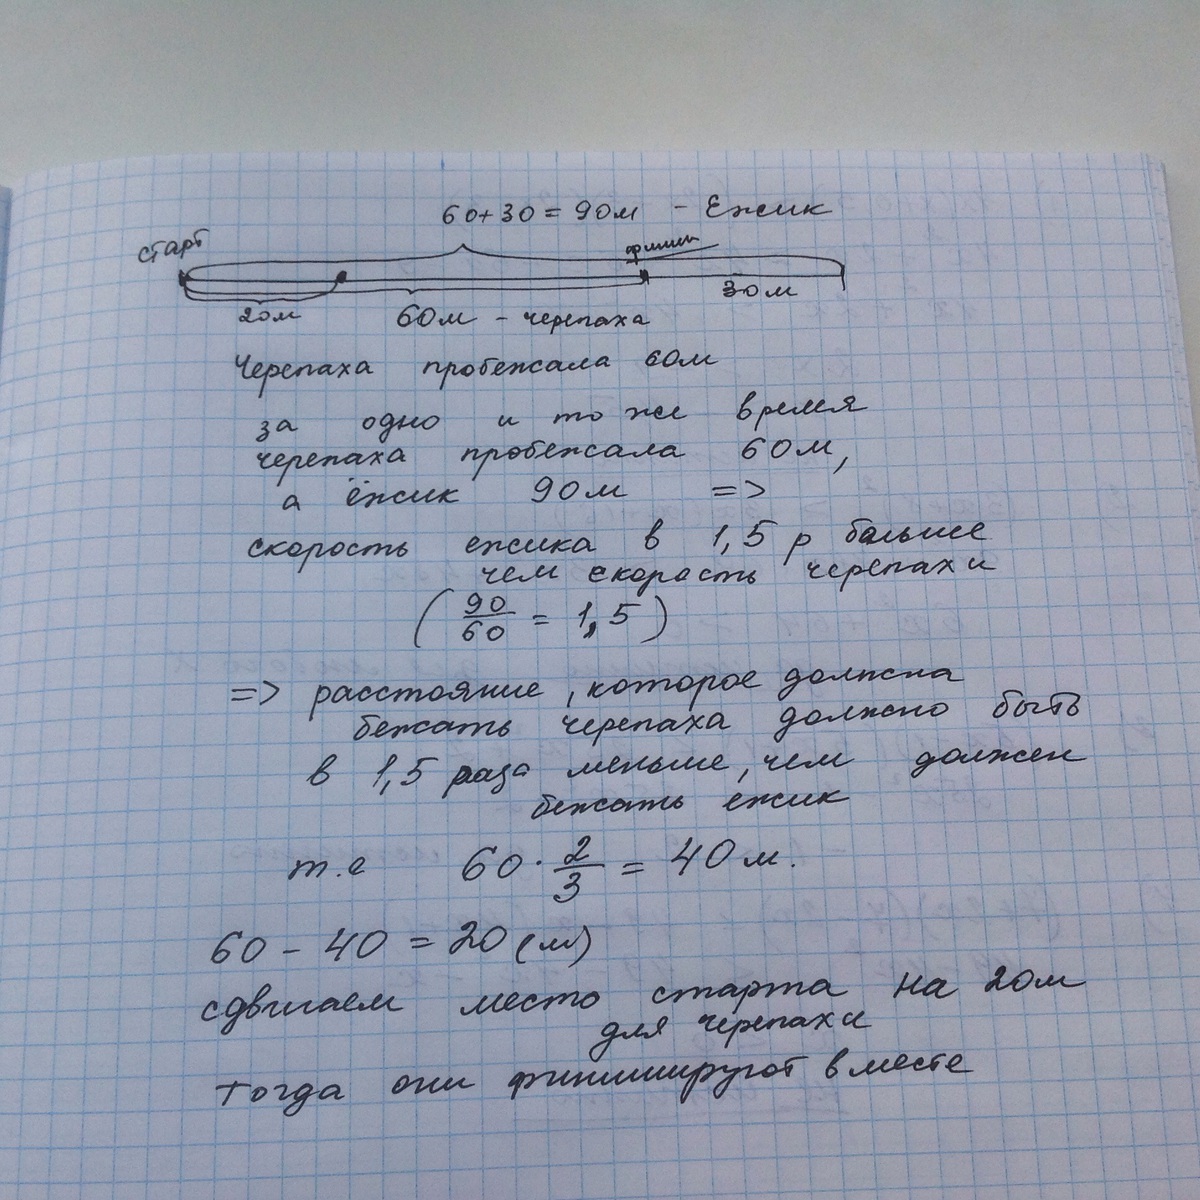 60+30=90м - Ежик
старт
финиш
20м
60м - черепаха
30м
Черепаха пробежала 60м
за одно и то же время
черепаха пробежала 60м,
а ёжик 90м =>
скорость ежика в 1,5 р больше
чем скорость черепахи
(90/60 = 1,5)
=> расстояние, которое должна
бежать черепаха должно быть
в 1,5 раза меньше, чем должен
бежать ежик
т.е 60 · 2/3 = 40м.
60 - 40 = 20(м)
сдвигаем место старта на 20м
для черепахи
тогда они финишируют вместе